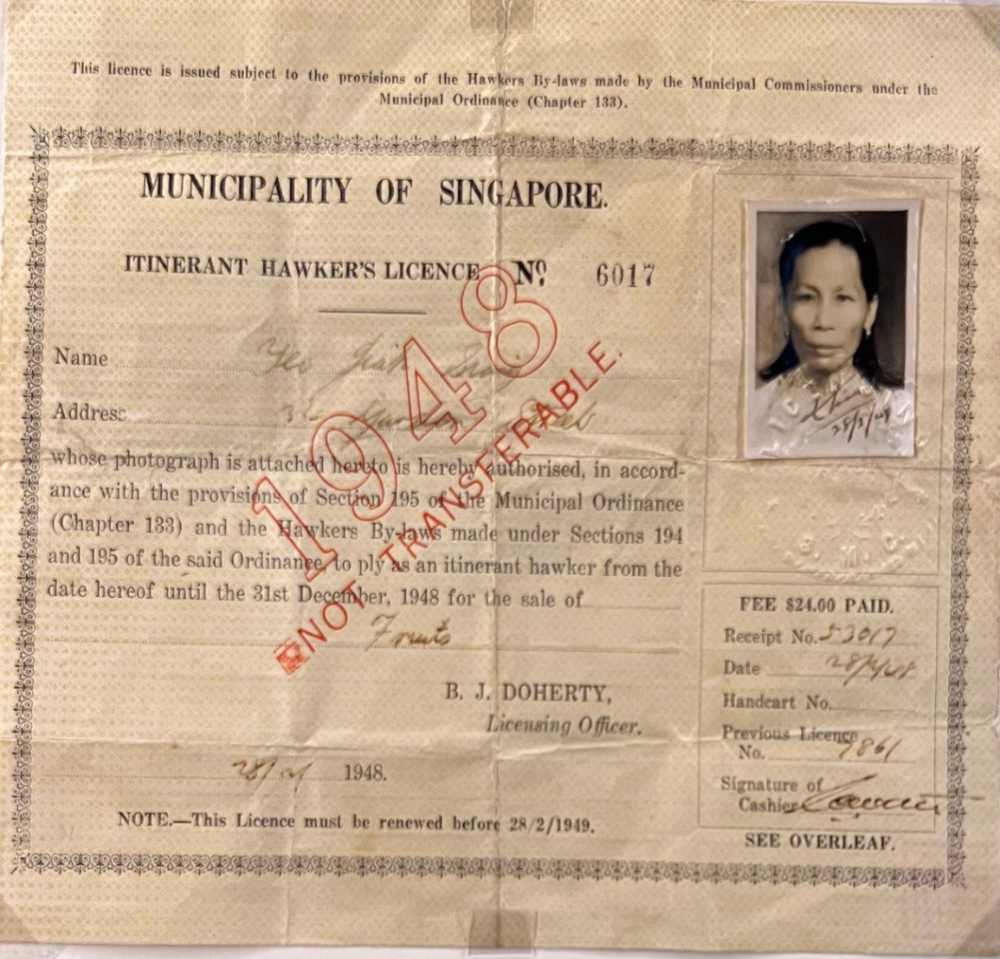 This licence is issued subject to the provisions of the Hawkers By-laws made by the Municipal Commissioners under the
Municipal Ordinance (Chapter 133).
MUNICIPALITY OF SINGAPORE.
ITINERANT HAWKER'S LICENCE Nº 6017
1948
NOT TRANSFERABLE.
Name Yeo
Address
whose photograph is attached hereto is hereby authorised, in accord-
ance with the provisions of Section 195 of the Municipal Ordinance
(Chapter 133) and the Hawkers By-laws made under Sections 194
and 195 of the said Ordinance, to ply as an itinerant hawker from the
date hereof until the 31st December, 1948 for the sale of
Fruits
B. J. DOHERTY,
Licensing Officer.
1948.
NOTE.—This Licence must be renewed before 28/2/1949.
FEE $24.00 PAID.
Receipt No. 53017
Date
Handcart No.
Previous Licence
No. 7861
Signature of
Cashier
SEE OVERLEAF.